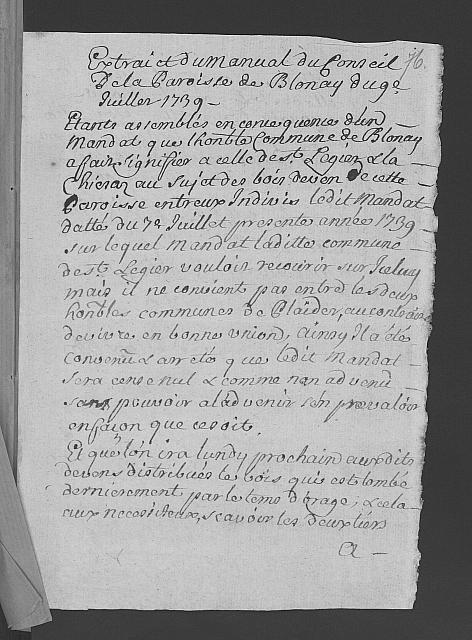 Extrait du Manual du Conseil 76.
De la Paroisse de Blonay du 9e
Juillet 1739 -
Etants assemblés en consequence d'un
Mandat que l'honble Commune de Blonay
a fait signifier a celle de St. Legier & la
Chiesaz au sujet des bois devens de cette
Paroisse entreux Indivis ledit Mandat
datté du 7e Juillet presente année 1739
sur lequel mandat laditte commune
de St. Legier vouloit recourir sur Iceluy
mais il ne convient pas entre les deux
honbles communes de Plaider, au contraire
de vivre en bonne vnion, ainsy Il a été
convenü & arreté que ledit Mandat
sera censé nul & comme non advenü
sans pouvoir à l'advenir s'en prevaloir
en façon que ce soit.
Et que l'ön ira lundy prochain auxdits
devens distribuer le bois qui est tombé
dernierement par le tems d'orage; & cela
aux necessiteux, scavoir les deux tiers
a -